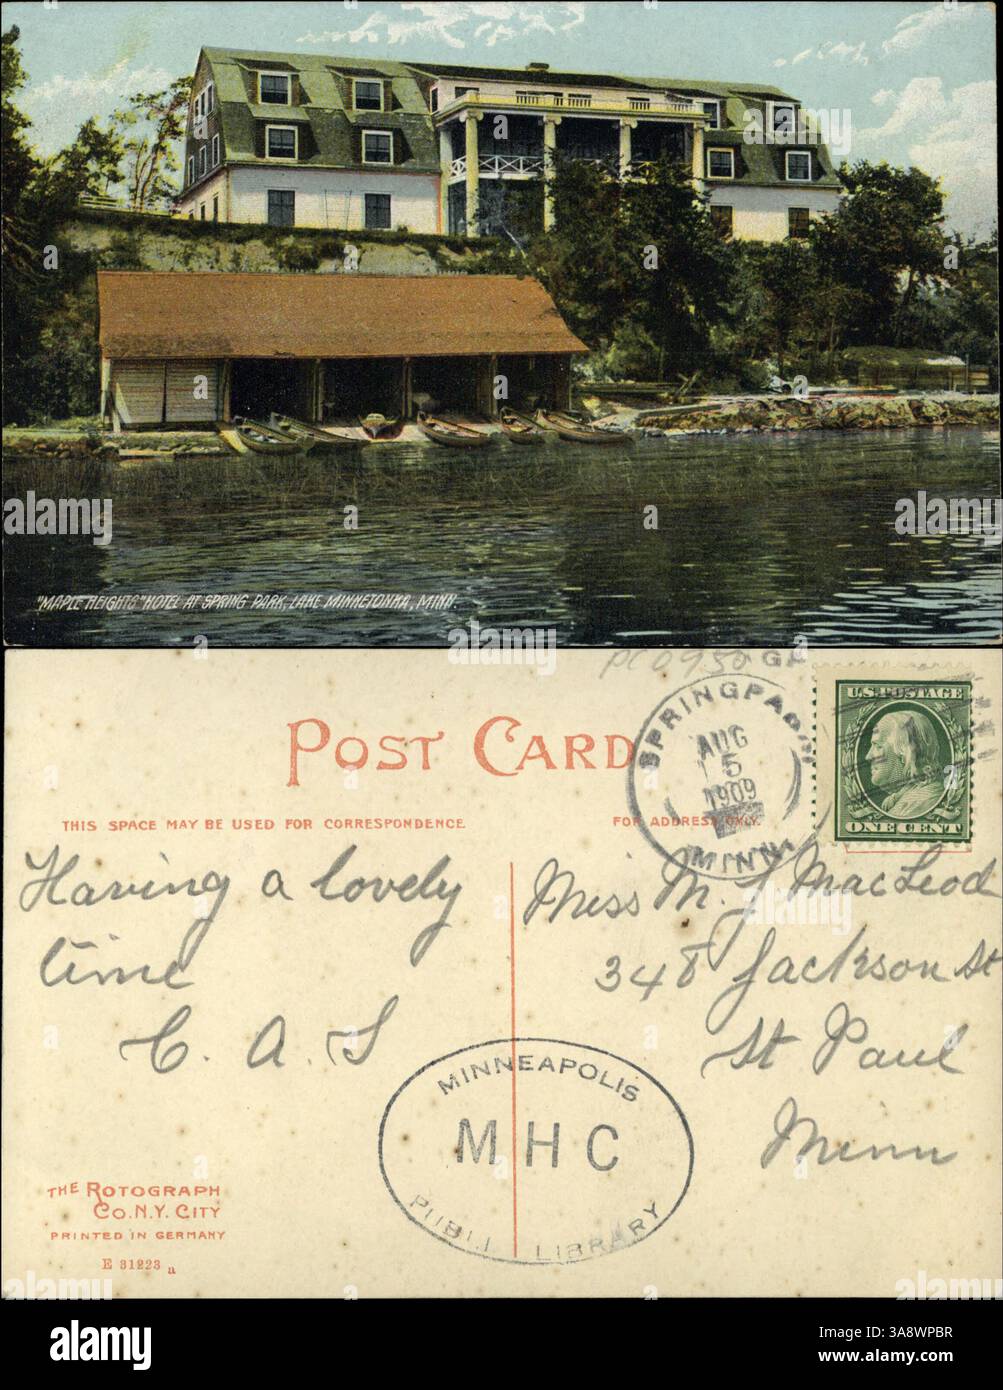 "MAPLE HEIGHTS" HOTEL AT SPRING PARK, LAKE MINNETONKA, MINN.
PC0950
POST CARD
THIS SPACE MAY BE USED FOR CORRESPONDENCE
FOR ADDRESS ONLY.
SPRINGPARK
AUG
5
1909
MINN.
U.S. POSTAGE
ONE CENT
Having a lovely
time
C. A. S
Miss M. J MacLeod
348 Jackson St
St Paul
Minn
MINNEAPOLIS
MHC
PUBLI LIBRARY
THE ROTOGRAPH
CO. N.Y. CITY
PRINTED IN GERMANY
E 31223 a
alamy
Image ID: 3A8WPBR
www.alamy.com